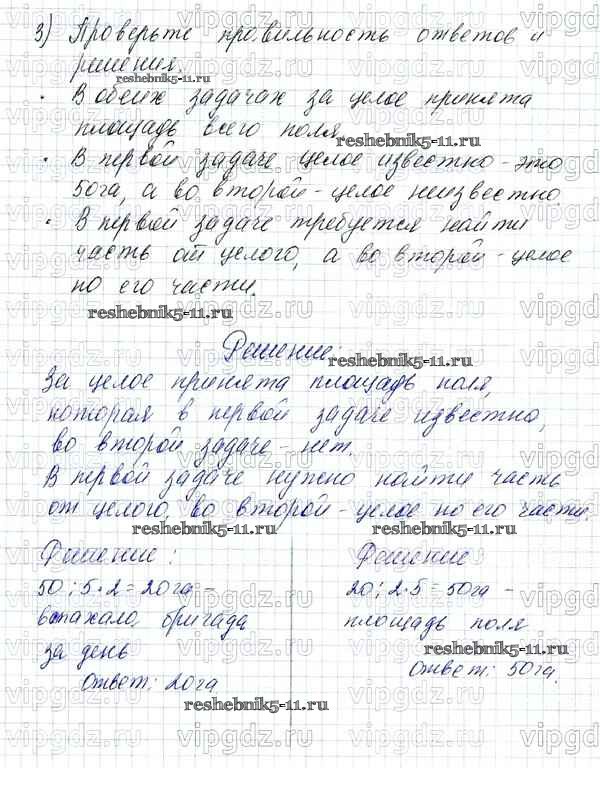 3) Проверьте правильность ответов и
решения.
• В обеих задачах за целое принята
площадь всего поля
• В первой задаче целое известно - это
50га, а во второй - целое неизвестно.
• В первой задаче требуется найти
часть от целого, а во второй - целое
по его части.
reshebnik5-11.ru
Решение:
За целое принята площадь поля,
которая в первой задаче известно,
во второй задаче - нет.
В первой задаче нужно найти часть
от целого, во второй - целое по его части.
reshebnik5-11.ru
Решение:
50:5·2=20га -
вспахало бригада
за день
Ответ: 20га
Решение
20:2·5=50га -
площадь поля
reshebnik5-11.ru
Ответ: 50га.
reshebnik5-11.ru
vipgdz.ru